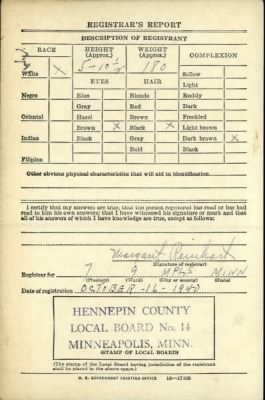 REGISTRAR'S REPORT
DESCRIPTION OF REGISTRANT
RACE HEIGHT (Approx.) WEIGHT (Approx.) COMPLEXION
White X 5-10 1/2 180 Sallow
Light
EYES HAIR
Negro Blue Blonde Ruddy
Gray Red Dark
Oriental Hazel Brown Freckled
Brown X Black X Light brown
Indian Black Gray Dark brown X
Bald Black
Filipino
Other obvious physical characteristics that will aid in identification
I certify that my answers are true; that the person registered has read or has had
read to him his own answers; that I have witnessed his signature or mark and that
all of his answers of which I have knowledge are true, except as follows:
Margaret Reinhart
(Signature of registrar)
Registrar for 7 9 MPLS MINN
(Precinct) (Ward) (City or county) (State)
Date of registration OCTOBER-16-1940
HENNEPIN COUNTY
LOCAL BOARD No. 14
MINNEAPOLIS, MINN.
(STAMP OF LOCAL BOARD)
(The stamp of the Local Board having jurisdiction of the registrant
shall be placed in the above space.)
U. S. GOVERNMENT PRINTING OFFICE 16-17105